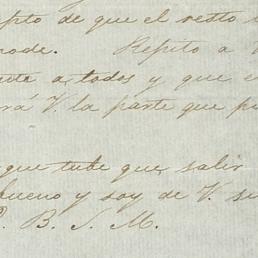 pto de que el resto
mode. Repito a V
a todos y que e
rá V. la parte que pu
que tube que salir
bueno y soy de V. su
B. S. M.